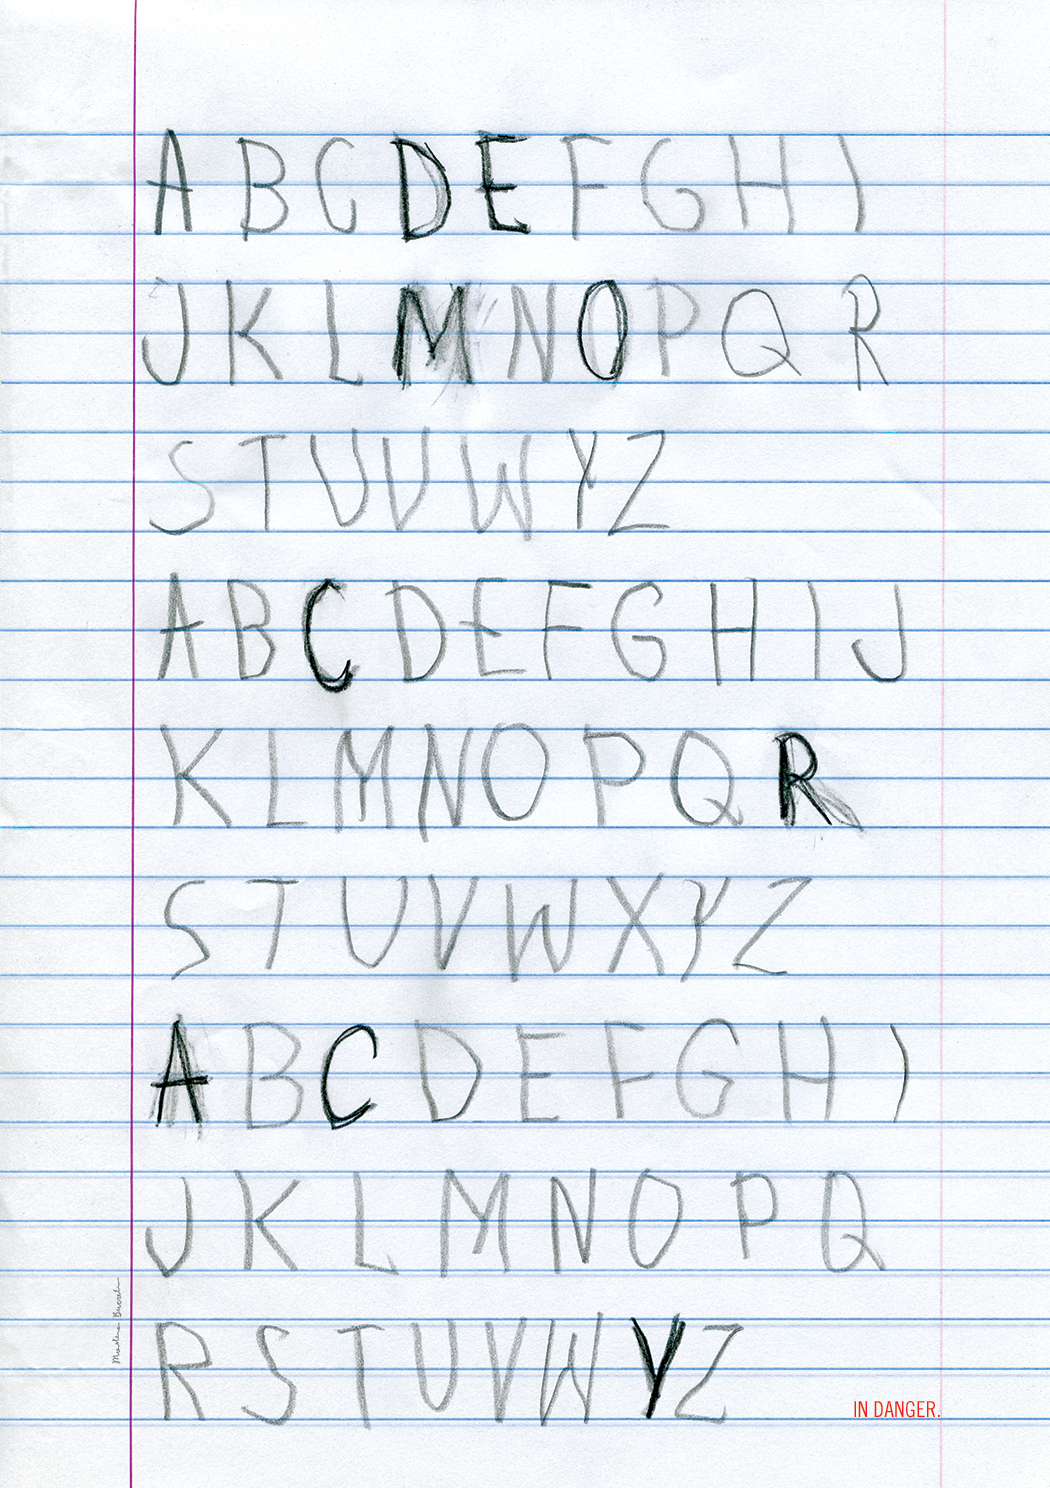 A B C D E F G H I
J K L M N O P Q R
S T U V W Y Z
A B C D E F G H I J
K L M N O P Q R
S T U V W X Y Z
A B C D E F G H I
J K L M N O P Q
R S T U V W Y Z
IN DANGER.